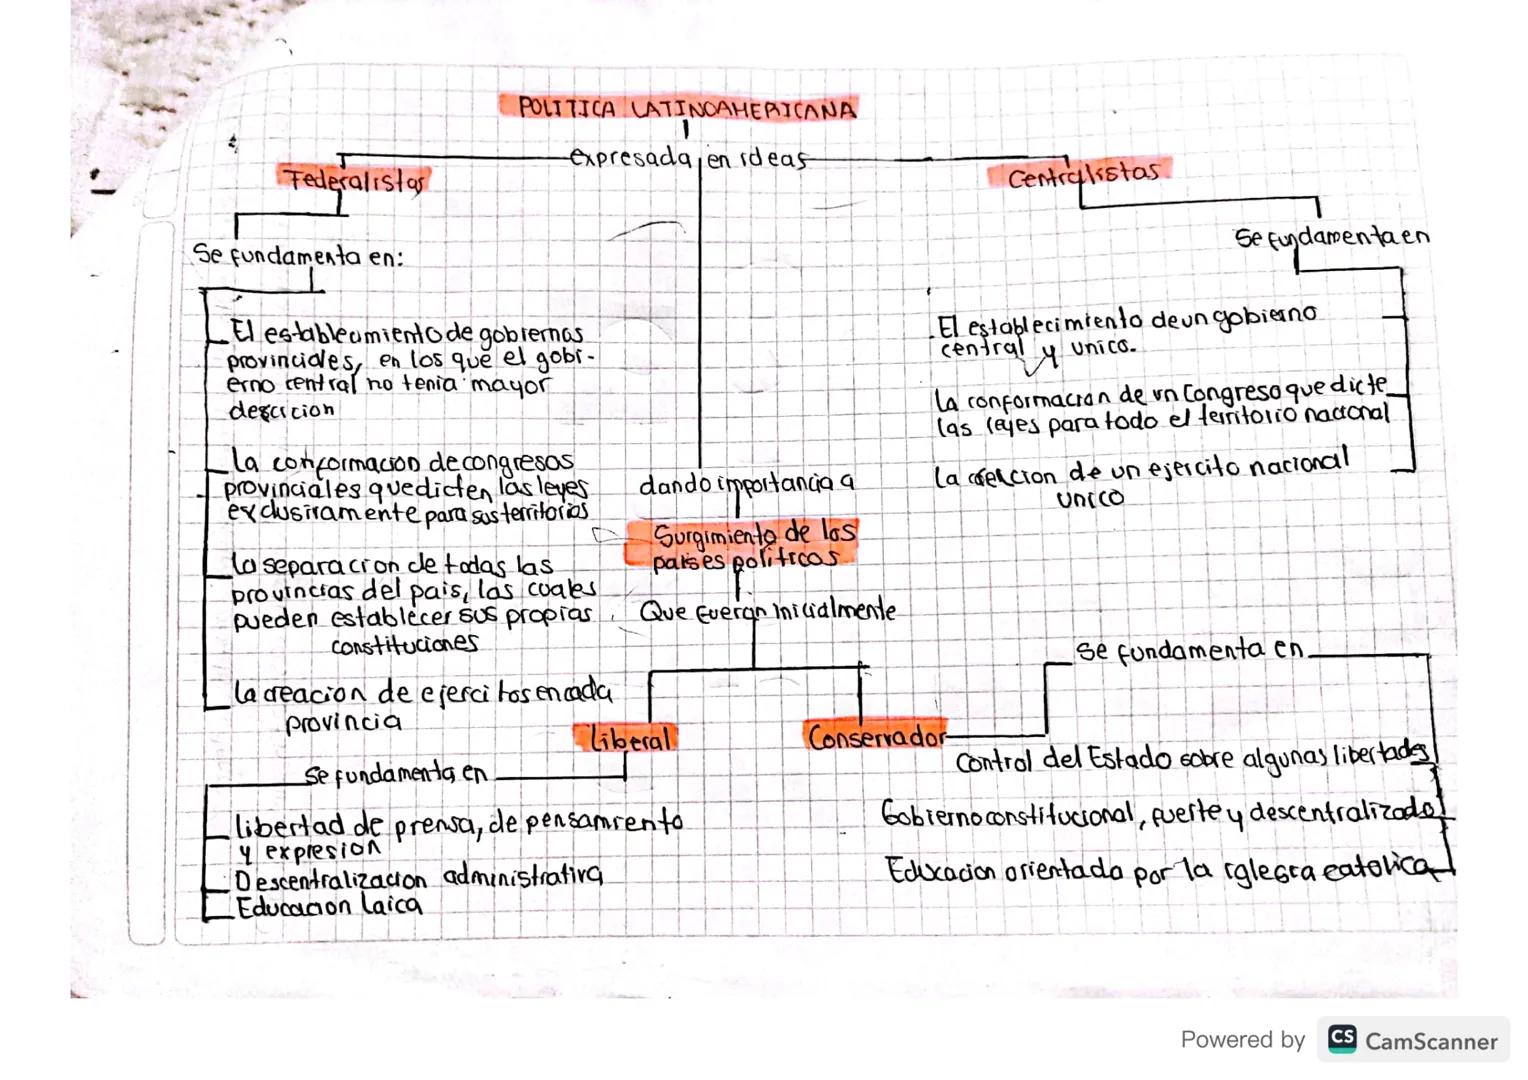 POLITICA LATINOAMERICANA
expresada en ideas
Federalistas
Centralistas
Se fundamenta en:
Se fundamenta en
El establecimiento de gobiernos
provinciales, en los que el gobi-
erno central no tenia mayor
desicion
La conformacion de congresos
provinciales que dicten las leyes
exclusivamente para sus territorios
La separacion de todas las
provincias del pais, las cuales
pueden establecer sus propias
constituciones
La creacion de ejercitos en cada
provincia
El establecimiento de un gobierno
central y unico.
La conformacion de un Congreso que dicte
las leyes para todo el territorio nacional
La creacion de un ejercito nacional
unico
dando importancia a
Surgimiento de los
paises politicos
Que fueron inicialmente
Liberal
Conservador
Se fundamenta en
Se fundamenta en
libertad de prensa, de pensamiento
y expresion
Descentralizacion administrativa
Educacion Laica
Control del Estado sobre algunas libertades
Gobierno constitucional, fuerte y descentralizado
Educacion orientada por la iglesia catolica
Powered by CS CamScanner